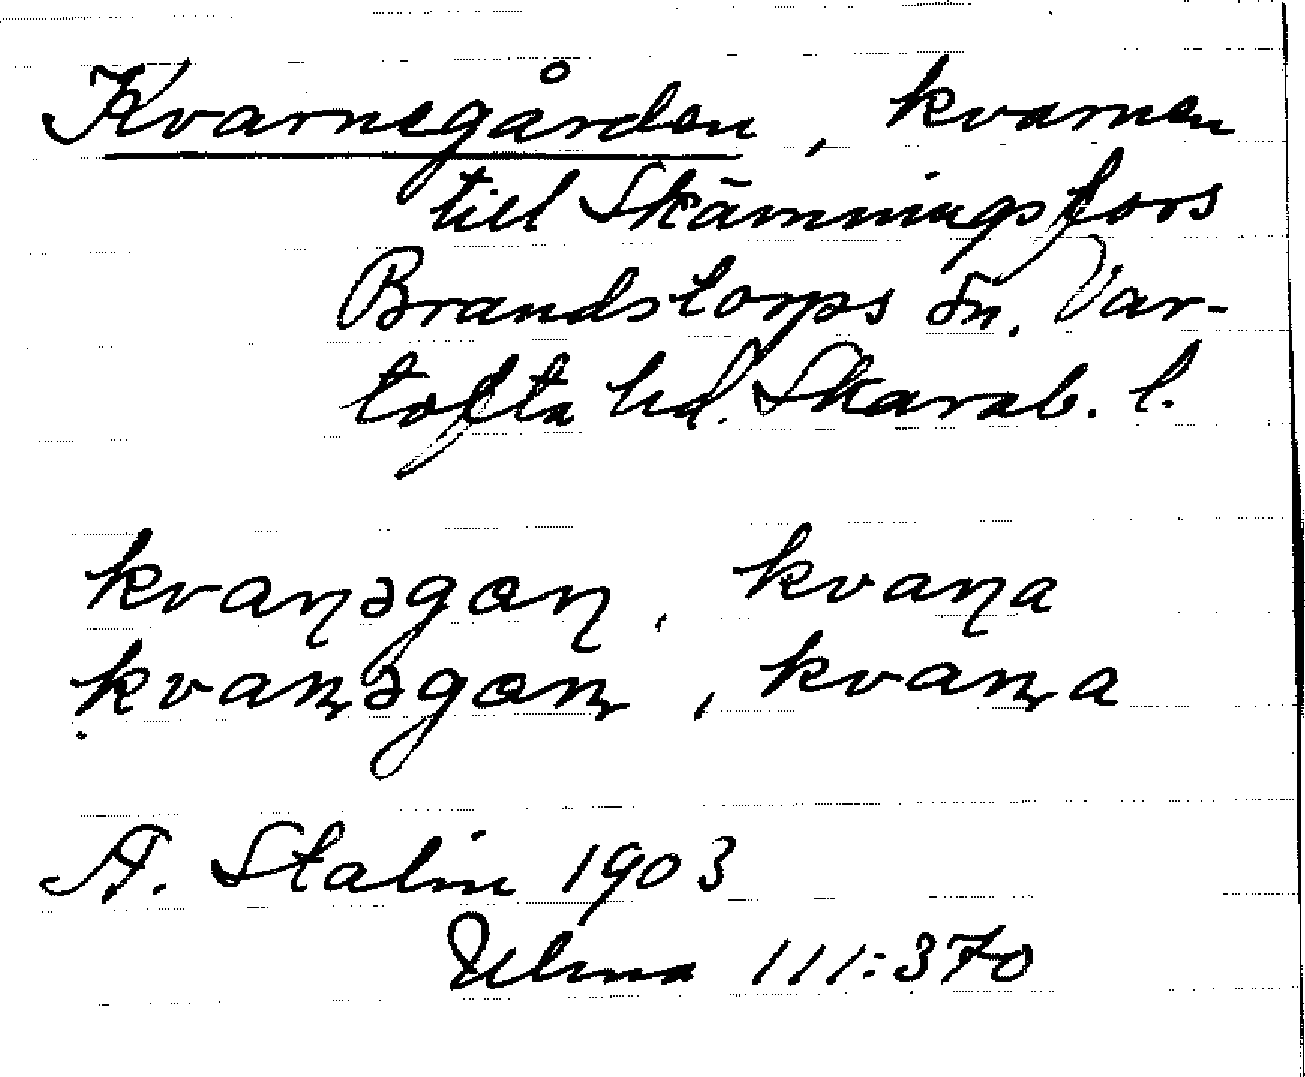 Kvarnegården, kvarnen
till Skämningsfors
Brandstorps sn. Var-
tofta hd. Skarab. l.
kvaɳəgaɳ, kvaɳa
kvaɳəgaɳ, kvaɳa
A. Stalin 1903
Ulma 111:370